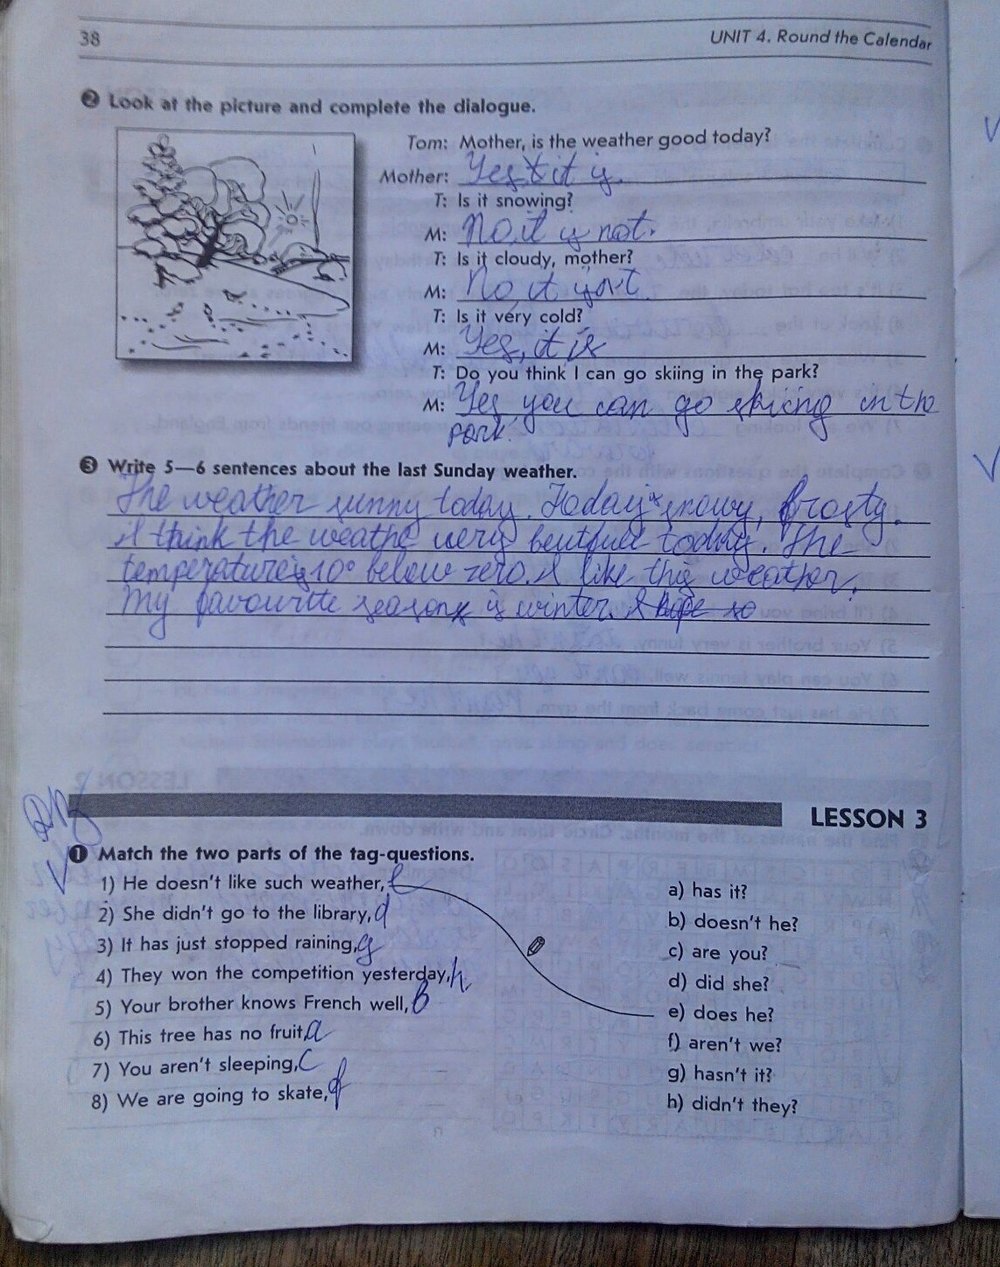 38
UNIT 4. Round the Calendar
2 Look at the picture and complete the dialogue.
Tom: Mother, is the weather good today?
Mother: Yes it is.
T: Is it snowing?
M: No it is not.
T: Is it cloudy, mother?
M: No it isn't.
T: Is it very cold?
M: Yes, it is
T: Do you think I can go skiing in the park?
M: Yes you can go skiing in the
park.
3 Write 5—6 sentences about the last Sunday weather.
The weather sunny today. Today snowy, frosty.
I think the weathe very beutfull today. The
temperature is 10° below zero. I like this weather.
My favourite season is winter. I hope so
LESSON 3
1 Match the two parts of the tag-questions.
1) He doesn't like such weather, e
2) She didn't go to the library, d
3) It has just stopped raining, g
4) They won the competition yesterday, h
5) Your brother knows French well, b
6) This tree has no fruit, a
7) You aren't sleeping, c
8) We are going to skate, f
a) has it?
b) doesn't he?
c) are you?
d) did she?
e) does he?
f) aren't we?
g) hasn't it?
h) didn't they?